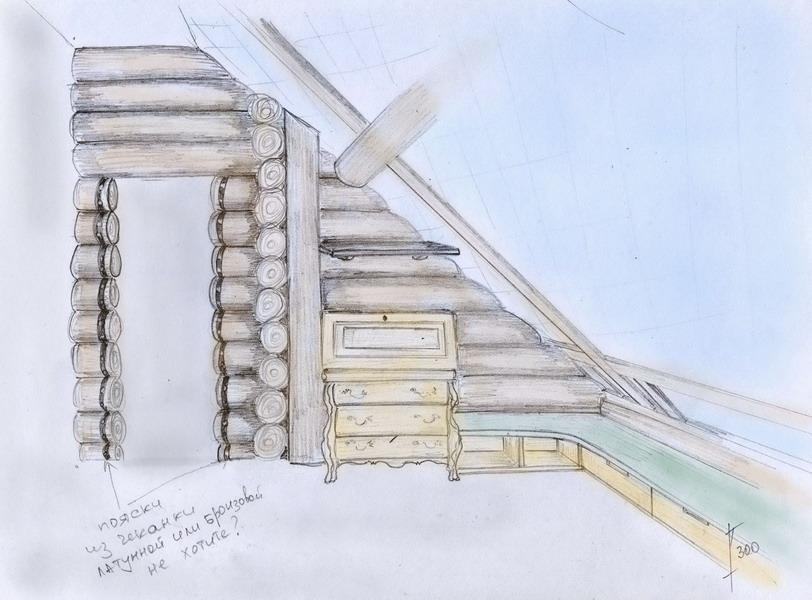 пояски
из чеканки
латунной или бронзовой
не хотите?
300